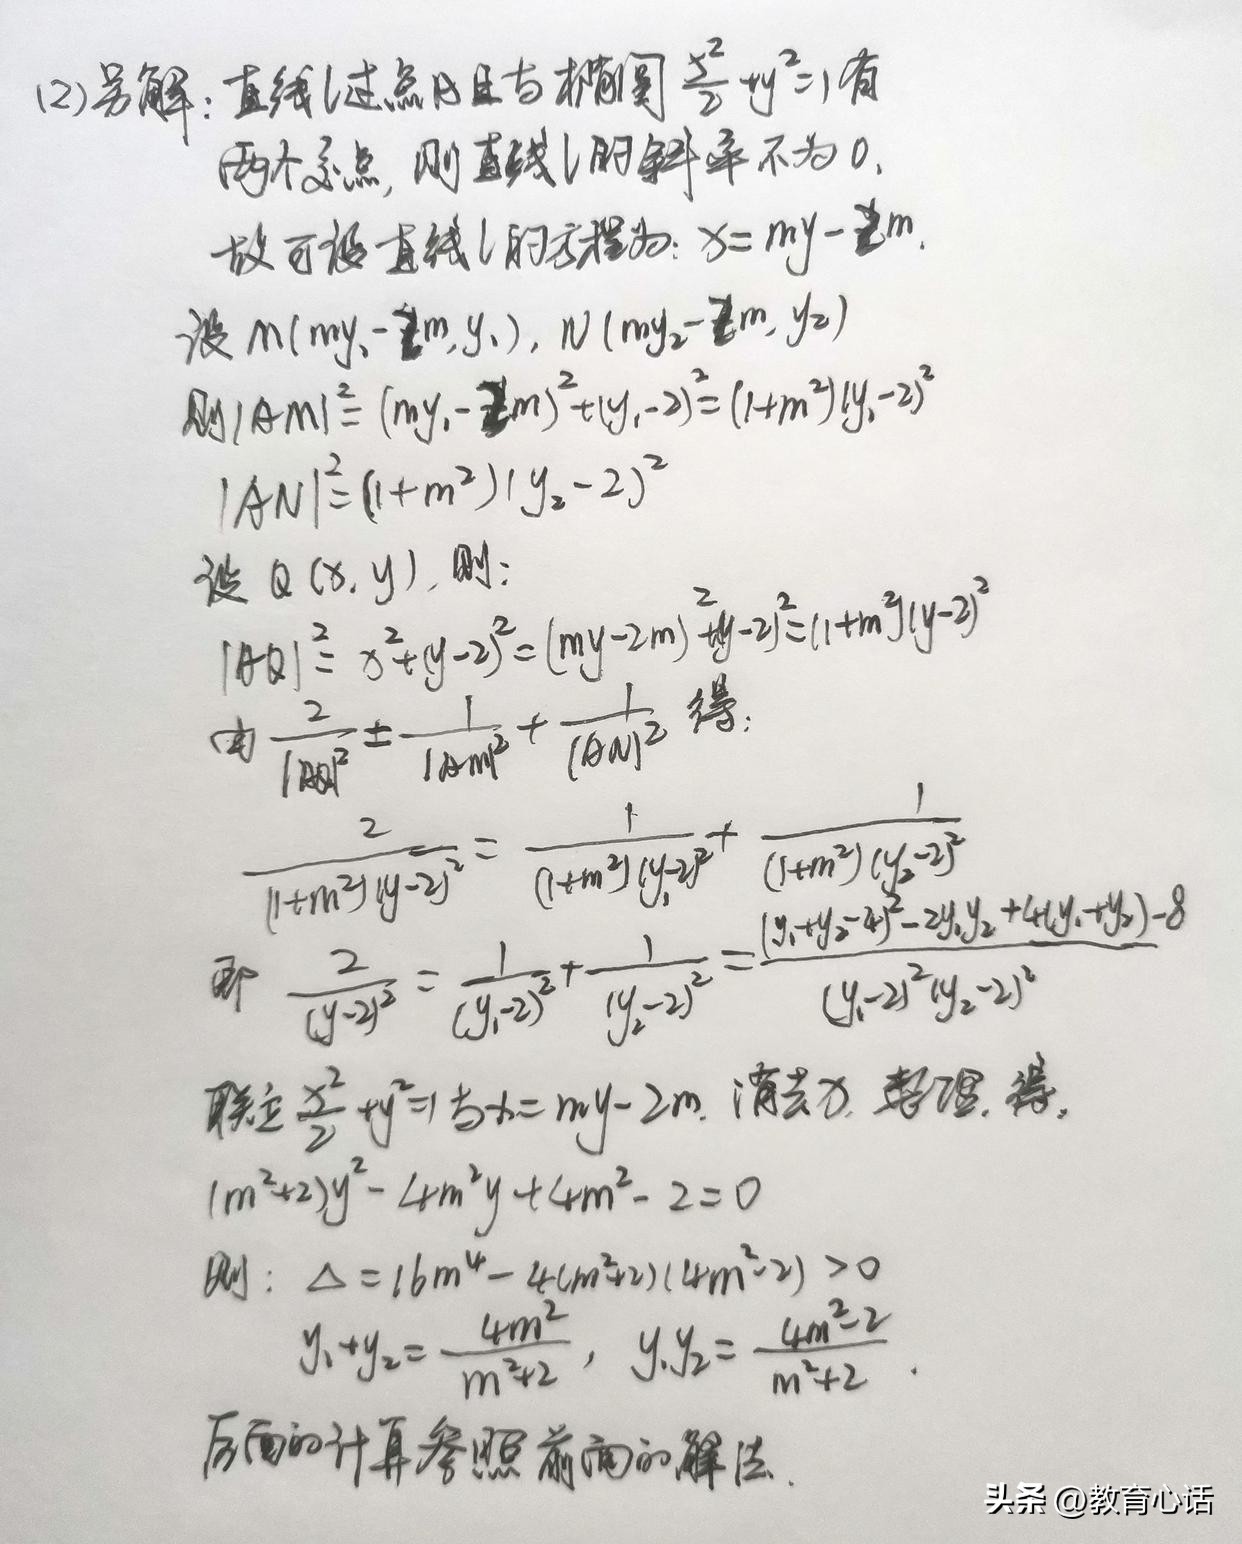 (2)另解:直线l过点A且与椭圆 x²/2+y²=1有
两个交点,则直线l的斜率不为0.
故可设直线l的方程为:x=my-2m.
设M(my₁-2m,y₁),N(my₂-2m,y₂)
则|AM|²=(my₁-2m)²+(y₁-2)²=(1+m²)(y₁-2)²
|AN|²=(1+m²)(y₂-2)²
设Q(x,y),则:
|AQ|²=x²+(y-2)²=(my-2m)²+(y-2)²=(1+m²)(y-2)²
由 2/|AQ|²=1/|AM|²+1/|AN|² 得:
2/((1+m²)(y-2)²)=1/((1+m²)(y₁-2)²)+1/((1+m²)(y₂-2)²)
即 2/(y-2)²=1/(y₁-2)²+1/(y₂-2)²=((y₁+y₂-4)²-2y₁y₂+4(y₁+y₂)-8)/((y₁-2)²(y₂-2)²)
联立 x²/2+y²=1与x=my-2m.消去x.整理.得.
(m²+2)y²-4m²y+4m²-2=0
则:△=16m⁴-4(m²+2)(4m²-2)>0
y₁+y₂=4m²/(m²+2),y₁y₂=(4m²-2)/(m²+2).
后面的计算参照前面的解法.
头条 @教育心话